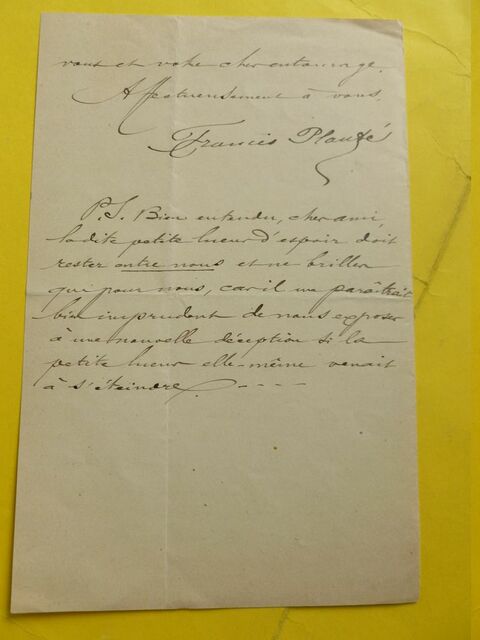 vous et votre cher entourage.
Affectueusement à vous,
Francis Planté
P.S. Bien entendu, cher ami,
la dite petite lueur d'espoir doit
rester entre nous et ne briller
que pour nous, car il me paraîtrait
bien imprudent de nous exposer
à une nouvelle déception si la
petite lueur elle-même venait
à s'éteindre. - - - -